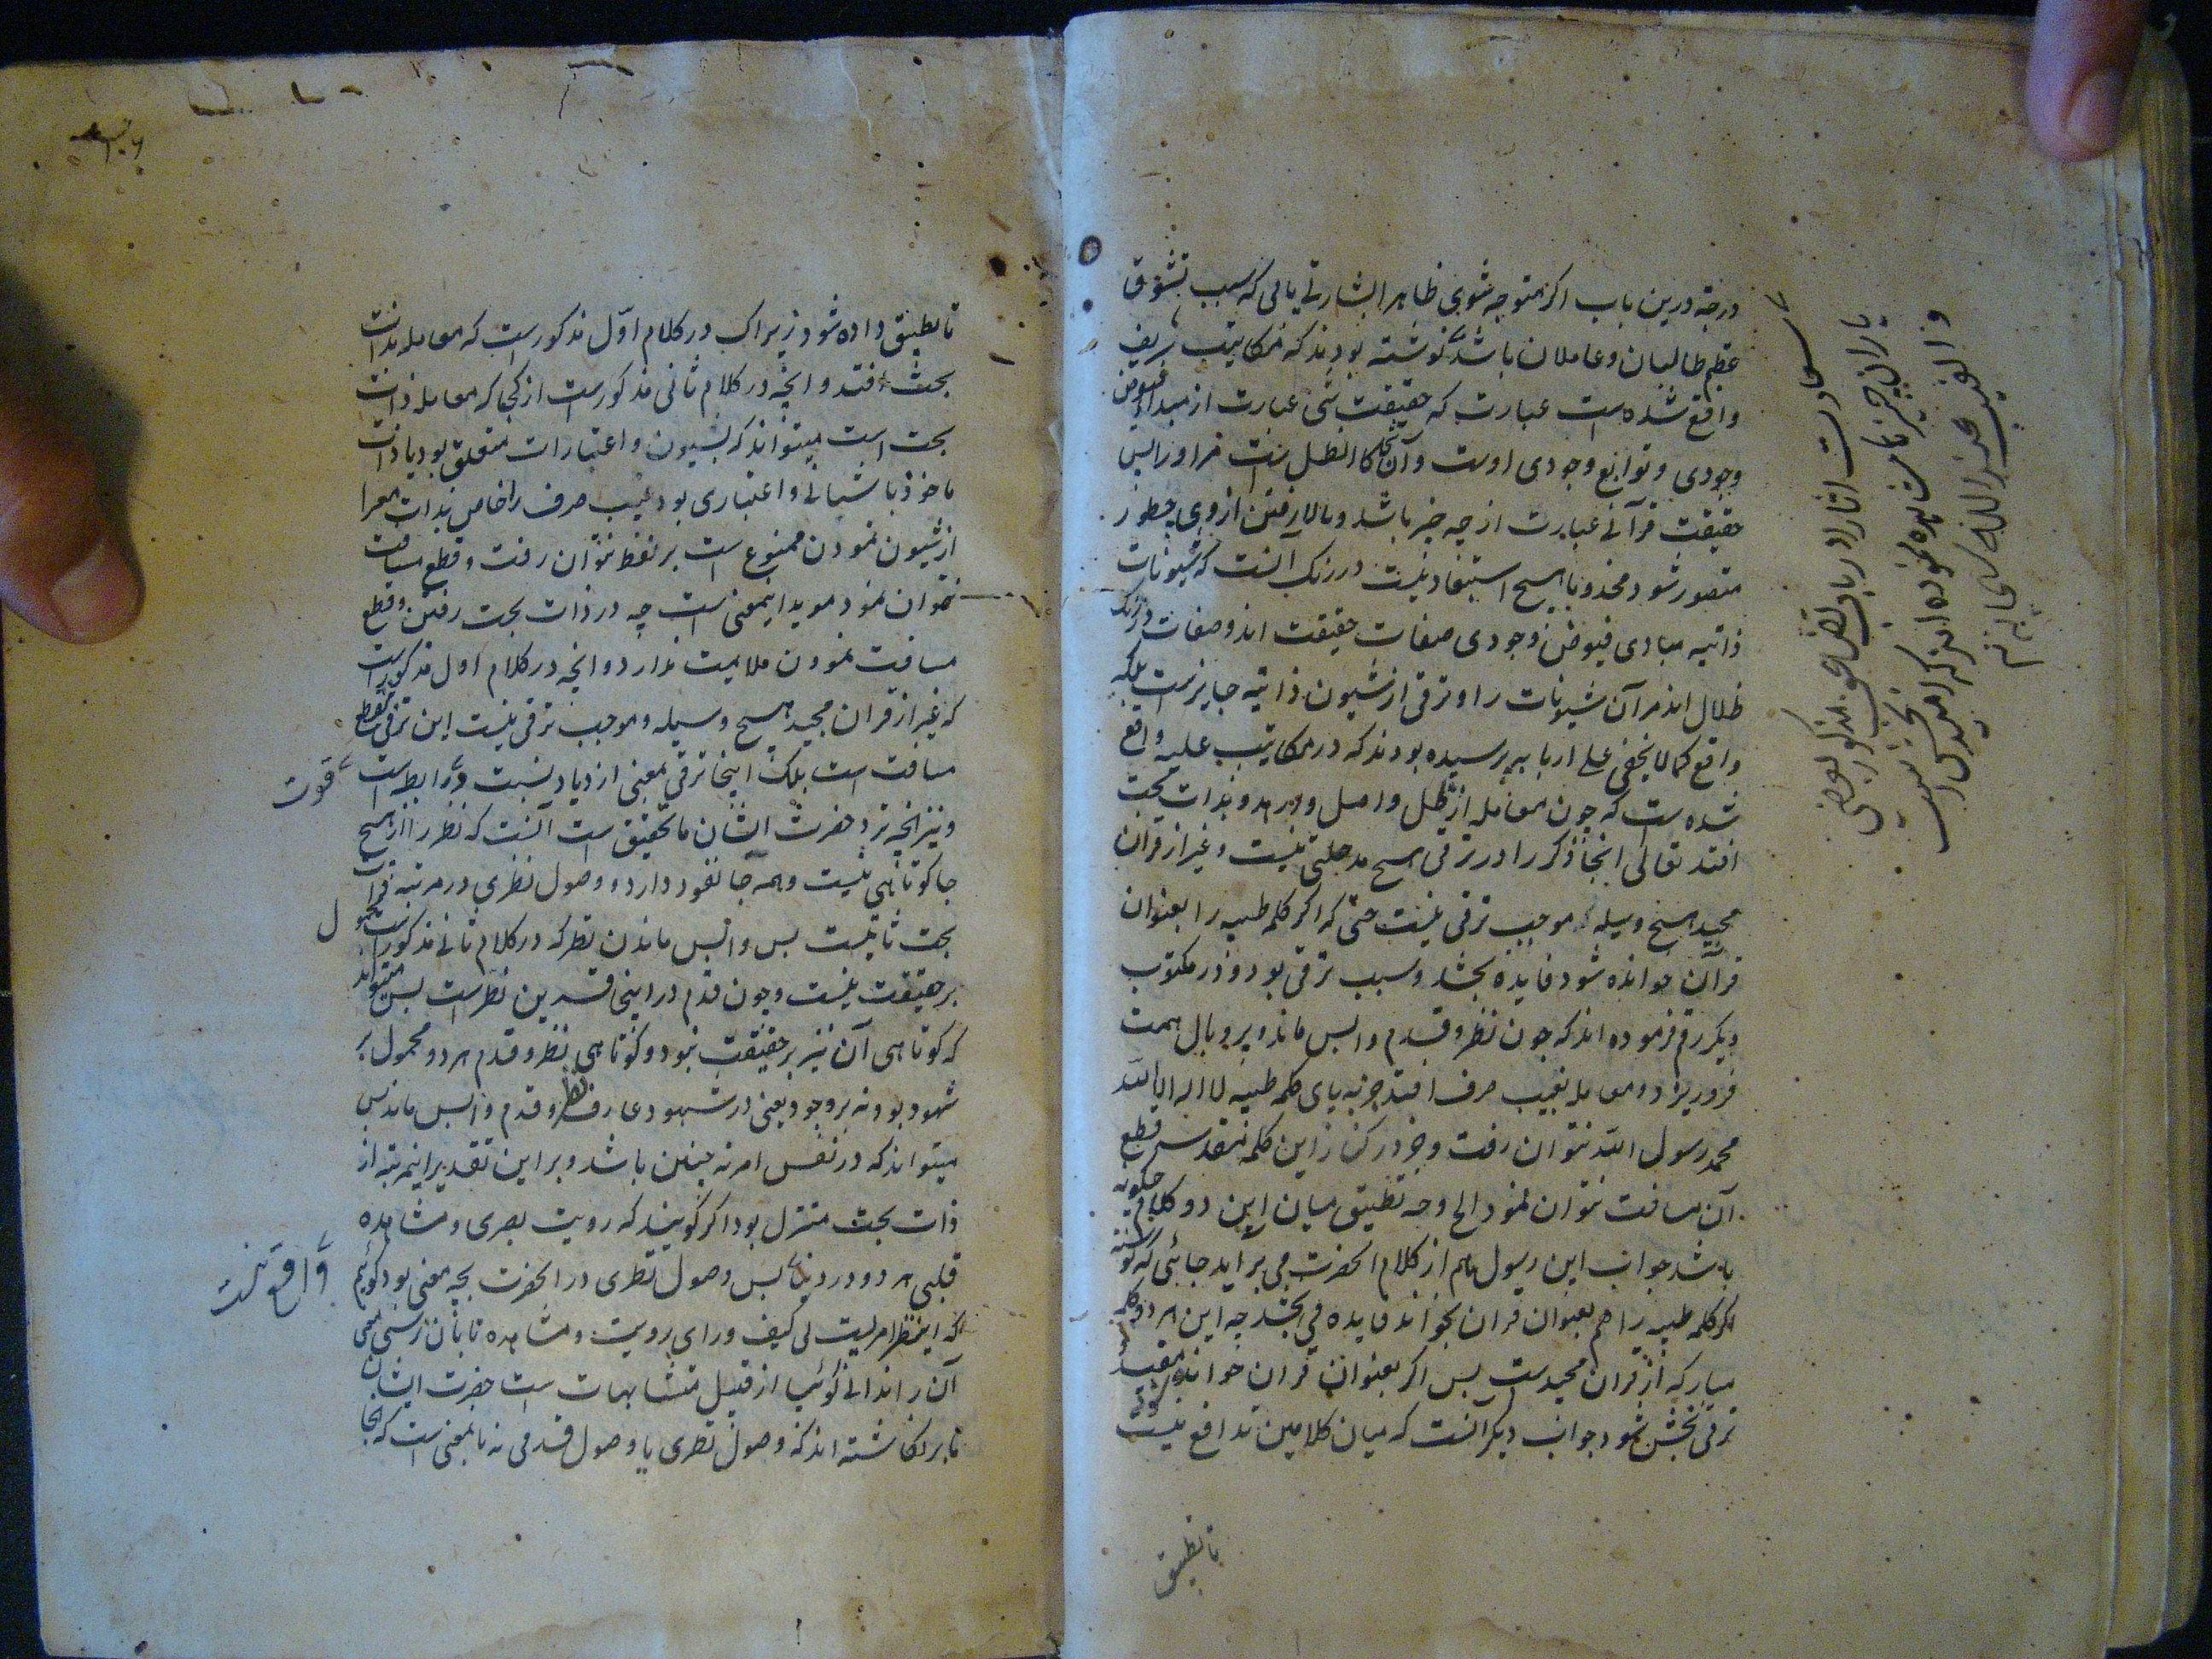 درخته درین باب اکر متوجه شوی ظاهرا بشارتی یابی که سبب تشوق
عظیم طالبان و عاملان باشد نوشته بودند که در مکاتیب شریف
واقع شده است عبارت که حقیقت شی عبارت از مبداء فیوض
وجودی و توابع وجودی اوست و آن کالظل است مر او را پس
حقیقت قرآنی عبارت از چه چیز باشد و بالا رفتن از وی چطور
متصور شود مخدوما هیچ استبعاد نیست در رنک آنست که شیونات
ذاتیه مبادی فیوض وجودی صفات حقیقت اند و صفات در رنک
ظلال اند مر آن شیونات را و ترقی از شیون ذاتیه جایز است بلکه
واقع کما لا یخفی علی اربابه پرسیده بودند که در مکاتیب علیه واقع
شده است که چون معامله از ظل و اصل و بذات بحت
افتد تعالی انجا ذکر را در ترقی هیچ مدخلی نیست و غیر از قرآن
مجید هیچ وسیله موجب ترقی نیست حتی که اکر کلمه طیبه را بعنوان
قرآن خوانده شود فایده بخشد و سبب ترقی بود و در مکتوب
دیکر رقم فرموده اند که چون نظر و قدم واپس ماند و پر و بال همت
فرو ریزد و معامله بغیب صرف افتد جز به پای کلمه طیبه لا اله الا الله
محمد رسول الله نتوان رفت و جز در کنار این کلمه مقدسه قطع
آن مسافت نتوان نمود الخ وجه تطبیق میان این دو کلام چکونه
باشد جواب این سؤل هم از کلام الحضرت می براید جائی که نوشته
اکر کلمه طیبه را هم بعنوان قران بخواند فایده می بخشد چه این هر دو کلمه
مبارکه از قران مجید است پس اکر بعنوان قران خوانده شود
ترقی بخش شود جواب دیکر آنست که میان کلامین تدافع نیست
تا تطبیق
سعادت اثارا دریاب بعضی مذکور بعضی
یاران چیزها مشاهده نموده اند که امید
تا تطبیق داده شود زیراک در کلام اول مذکور است که معامله بذات
بحت افتد و انچه در کلام ثانی مذکور است از کجا که معامله ذات
بحت است میتواند که بشیون و اعتبارات متعلق بود یا ذات
ماخوذ با شیانی و اعتباری بود غیب صرف را خاص بذات معرا
از شیون نمودن ممنوع است بر نقط نتوان رفت و قطع مسافت
نتوان نمود موید اینمعنی است چه در ذات بحت رفتن و قطع
مسافت نمودن ملایمت ندارد و انچه در کلام اول مذکور است
که غیر از قران مجید هیچ وسیله و موجب ترقی نیست این ترقی نه قطع
مسافت است بلک اینجا ترقی بمعنی ازدیاد نسبت و رابطه است
قوت
و نیز انچه نزد حضرت ایشان ما تحقیق است آنست که نظر را هیچ
جا کوتاهی نیست و همه جا نفوذ دارد و وصول نظری در مرتبه ذات
بحت ثابت است پس واپس ماندن نظر که در کلام ثانی مذکور است
بر حقیقت نیست و چون قدم در اینجا قرین نظر است پس میتواند
که کوتاهی آن نیز بر حقیقت نبود و کوتاهی نظر و قدم هر دو محمول بر
شهود بود نه بر وجود یعنی در شهود عارف نظر و قدم واپس ماند پس
میتواند که در نفس امر نه چنین باشد و بر این تقدیر اینمرتبه از
ذات بحت متنزل بود اکر کویند که رویت بصری و مشاهده
قلبی هر دو در دنیا پس وصول نظری در الحضرت بچه معنی بود کوئیم
واقع نیست
که این نظر امریست بی کیف ورای رویت و مشاهده تا بان نرسی معنی
آن را ندانی کوئیا از قبیل متشابهات است حضرت ایشان
ما بر نکاشته اند که وصول نظری یا وصول قدمی نه بانمعنی است که انجا